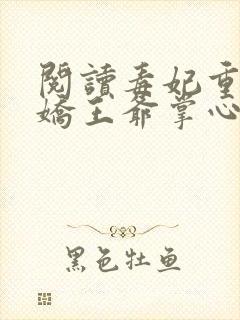 閱讀毒妃重
嬌王爺掌心
黑色牡鱼